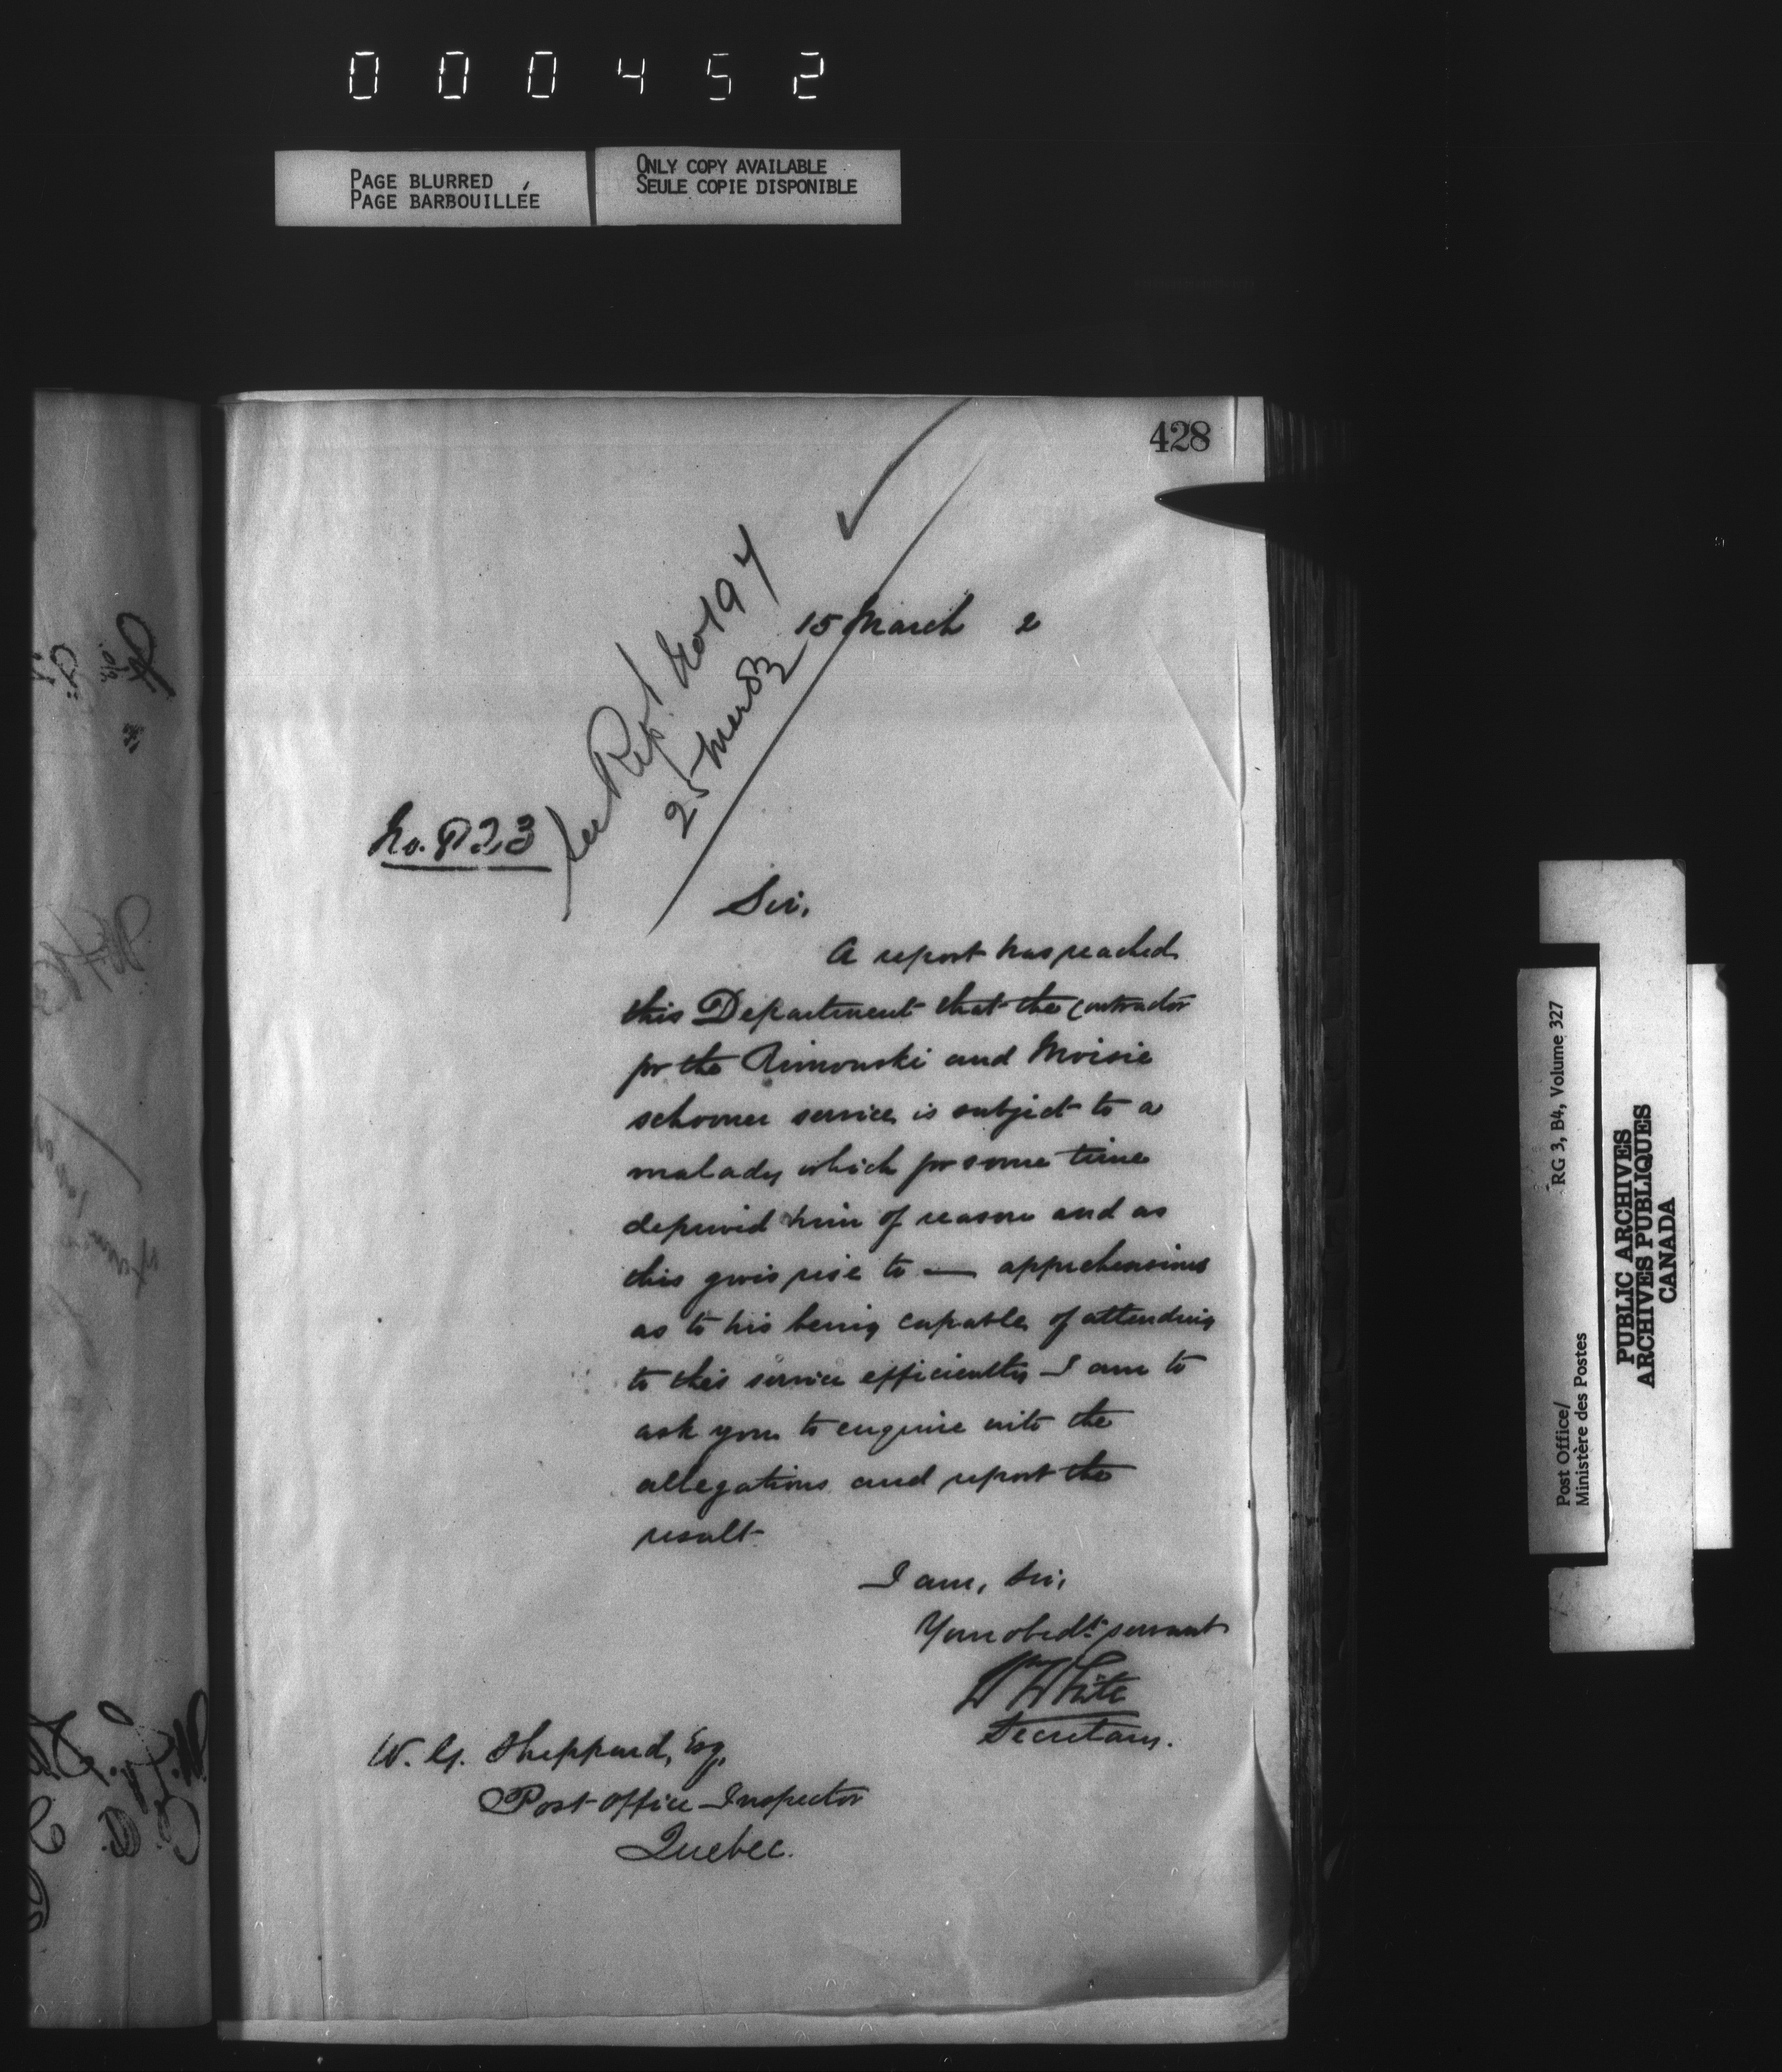 000452
PAGE BLURRED
PAGE BARBOUILLÉE
ONLY COPY AVAILABLE
SEULE COPIE DISPONIBLE
428
15 March 2
See Rept. No 194
25 Mar 82
No. P23
Sir,
A report has reached
this Department that the contractor
for the Rimouski and Moisie
schooner service is subject to a
malady which for some time
deprived him of reason and as
this gives rise to — apprehensions
as to his being capable of attending
to this service efficiently I am to
ask you to enquire into the
allegations and report the
result
I am, Sir,
Your obedt. servant
Wm White
Secretary.
W. G. Sheppard, Esq,
Post Office Inspector
Quebec.
Post Office/
Ministère des Postes
RG 3, B4, Volume 327
PUBLIC ARCHIVES
ARCHIVES PUBLIQUES
CANADA